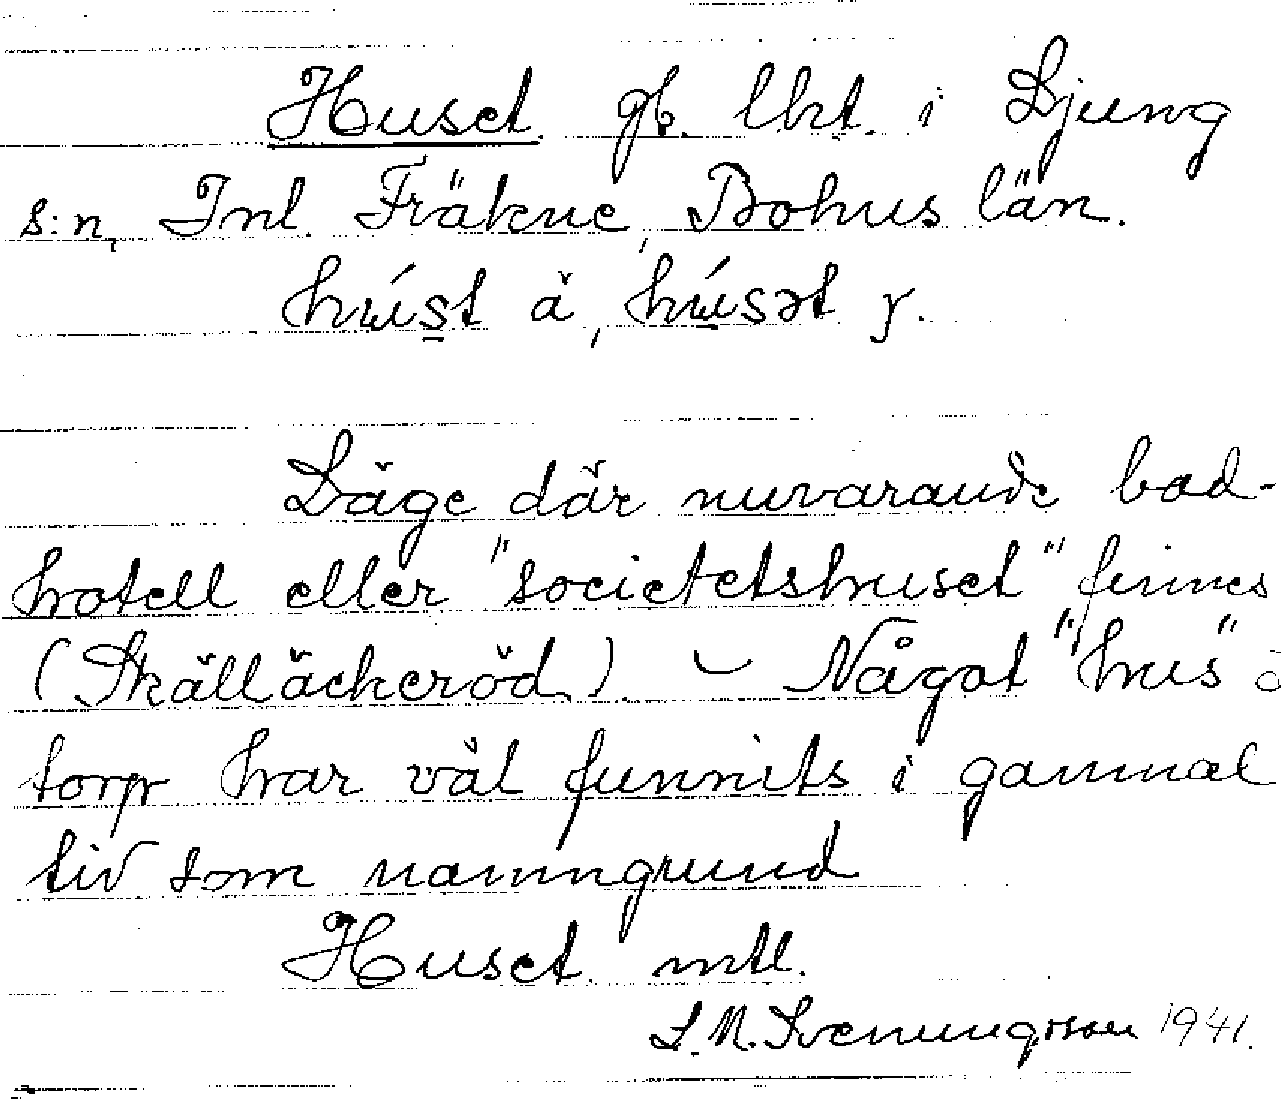 Huset gb. lht. i Ljung
s:n, Inl. Fräkne, Bohus län.
húst ä, húsət y.
Läge där nuvarande bad-
hotell eller "societetshuset" finnes
(Skälläckeröd). – Något "hus" å
torp har väl funnits i gammal
tid som namngrund
Huset mtl.
S. M. Svenungsson 1941.